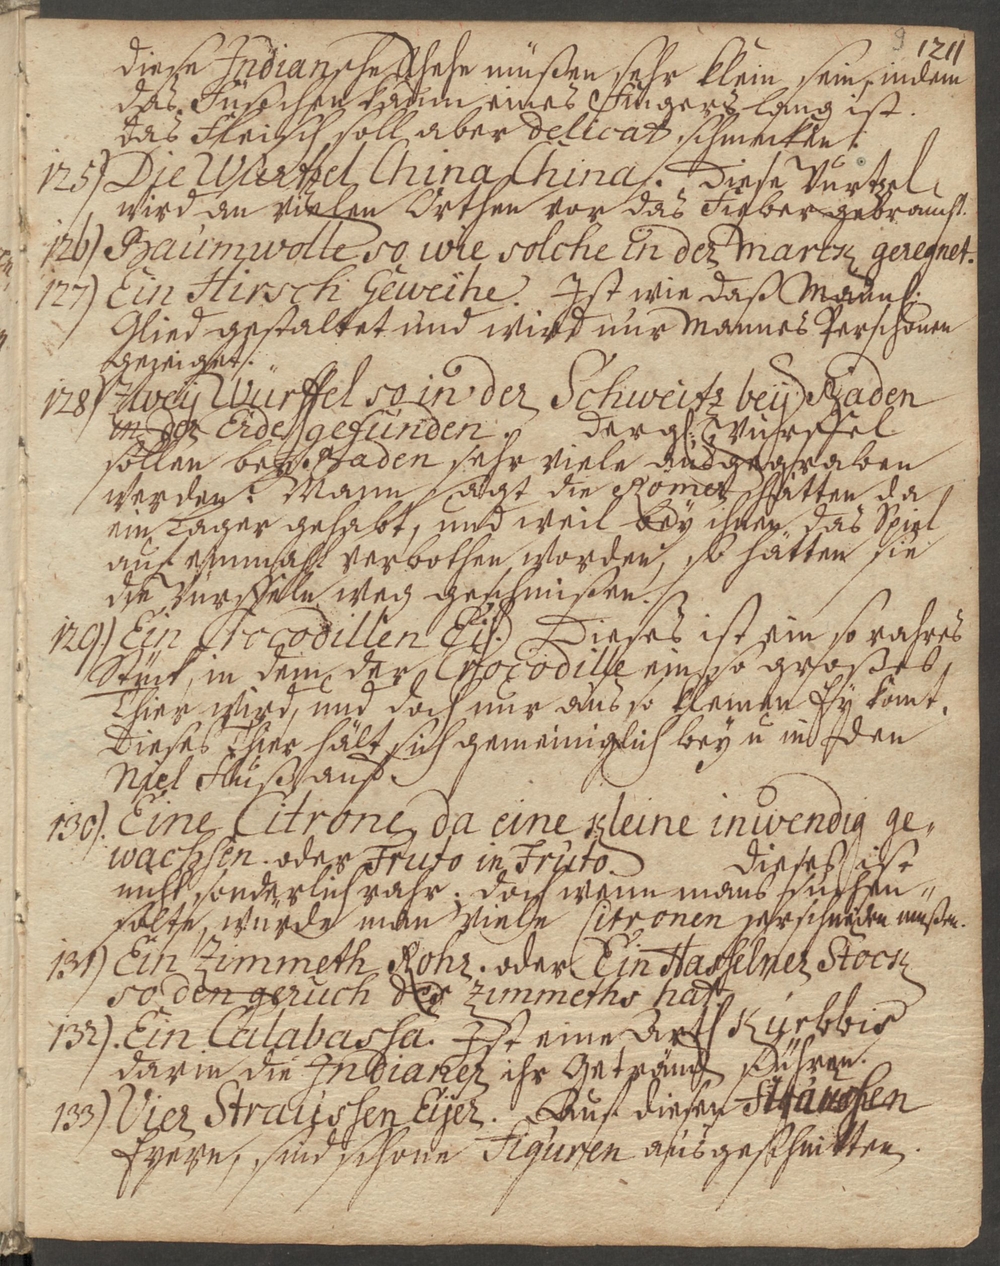 9 1211
diese Indianische Rehe müßen sehr klein sein, indem
das Füßchen kaum eines Fingers lang ist.
das Fleisch soll aber delicat schmecken.
125) Die Wurtzel China China. Diese Wurtzel
wird an vielen Orthen vor das Fieber gebraucht.
126) Baumwolle so wie solche in der Marck geregnet.
127) Ein Hirsch Geweihe. Ist wie daß Mannl:
Glied gestaltet und wird nur Mannes Perschonen
gezeiget.
128) Zweÿ Würffel so in der Schweitz beÿ Baden
in der Erde gefunden. Dergl: Würffel
sollen beÿ Baden sehr viele ausgegraben
werden. Mann sagt die Römer hätten da
ein Lager gehabt, und weil beÿ ihnen das Spiel
auf einmahl verbothen worden, so hätten sie
die Würffeln weg geschmißen.
129) Ein Crocodillen Eÿ. Dieses ist ein so rahres
Stück, in dem der Crocodille ein so großes
Thier wird, und doch nur aus so kleinen Eÿ komt.
Dieses Thier hält sich gemeiniglich beÿ u in den
Niel Fluß auf.
130). Eine Citrone, da eine kleine inwendig ge„
wachsen. oder Fruto in Fruto. Dieses ist
nicht sonderlich rahr. doch wenn mans suchen„
solte, würde man viele Citronen zerschneiden müßen.
131) Ein Zimmeth Rohr. oder Ein Hasselner Stock
so den geruch des Zimmeths hatt
132). Ein Calabassa. Ist eine Arth Kürbbis
darin die Indianer ihr Getränck führen.
133) Vier Straussen Eÿer. Auf diesen Straussen
Eyern, sind schöne Figuren ausgeschnitten.